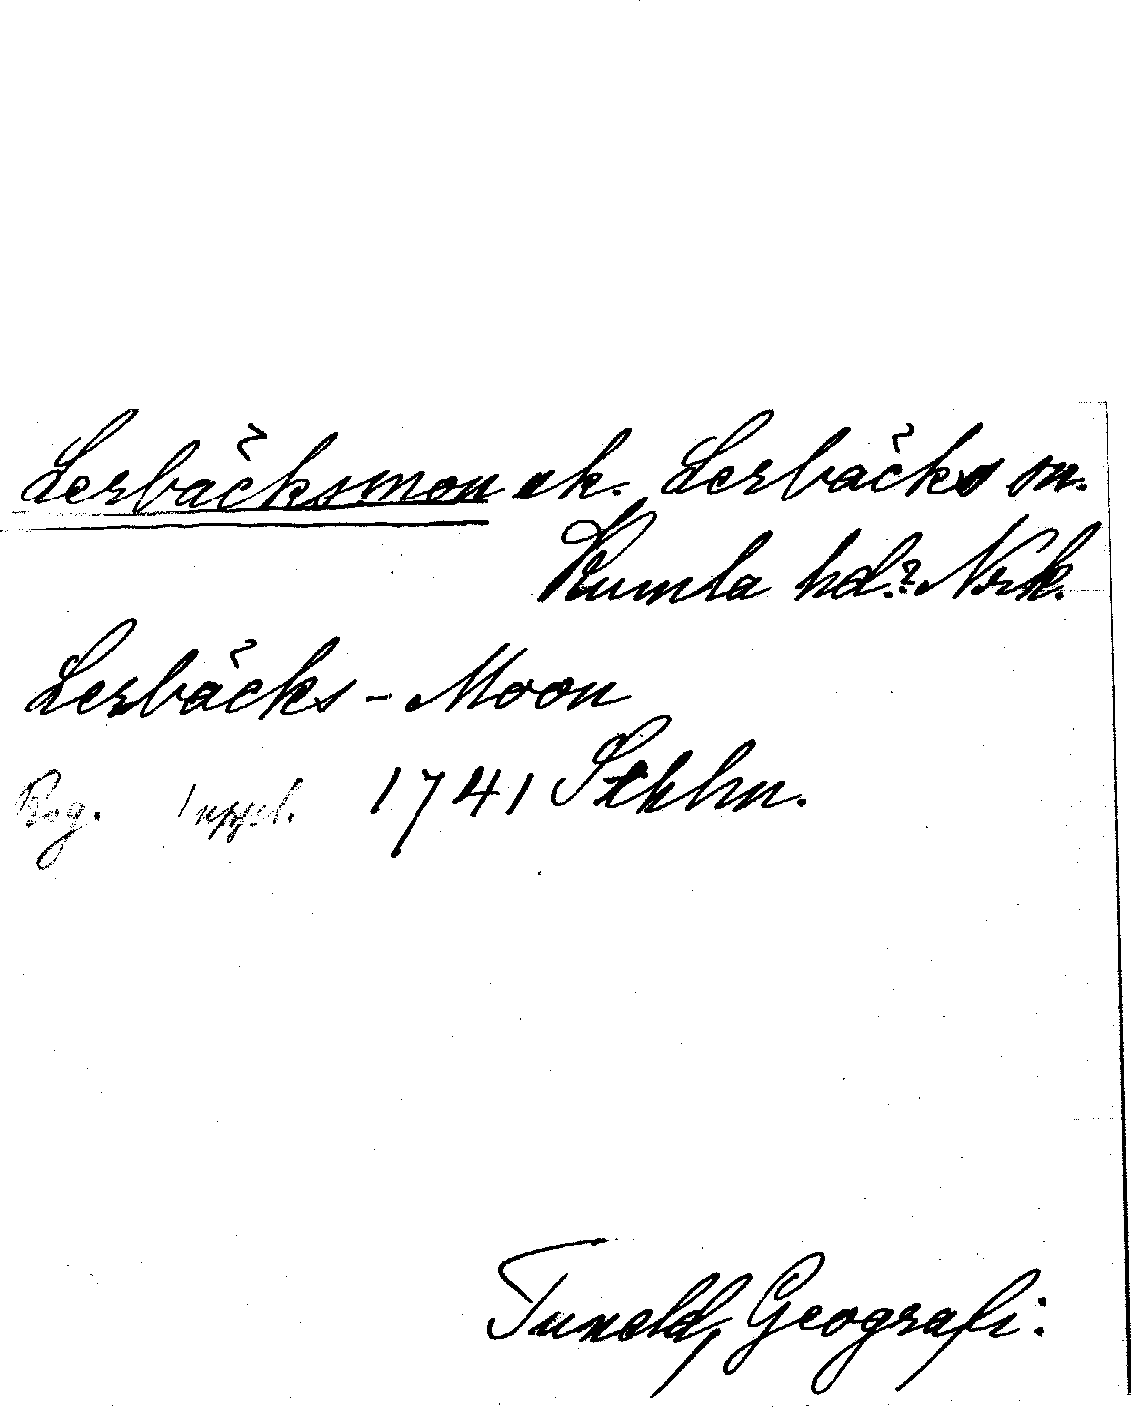 Lerbäcksmon sk. Lerbäcks sn.
Kumla hd. Nrk.
Lerbäcks-Moon
Reg. 1 uppl. 1741 Sthlm.
Tuneld, Geografi.